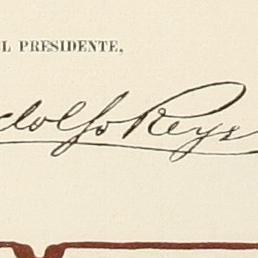 L PRESIDENTE,
dolfo Reyes